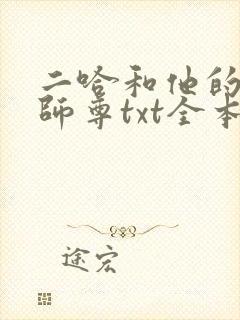 二哈和他的
師尊txt全本
途宏